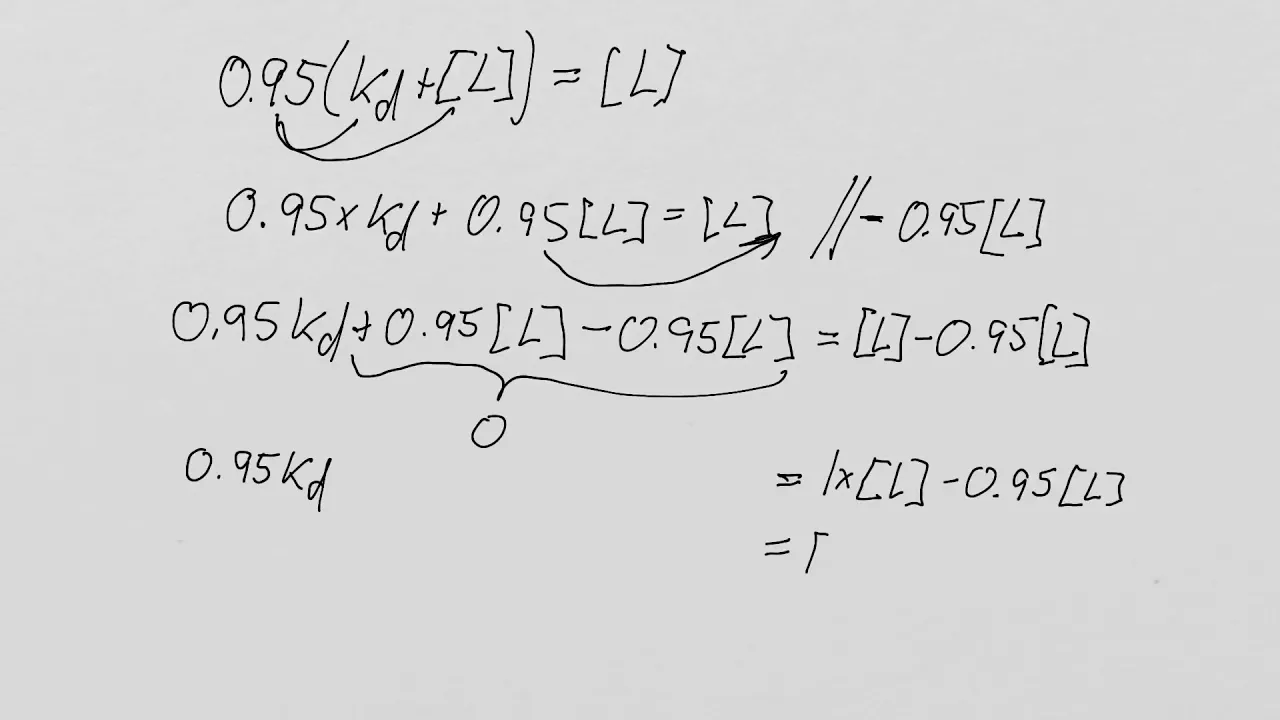 0.95(Kd+[L]) = [L]
0.95×Kd + 0.95[L] = [L] // - 0.95[L]
0.95Kd + 0.95[L] - 0.95[L] = [L] - 0.95[L]
0
0.95Kd = 1×[L] - 0.95[L]
= [